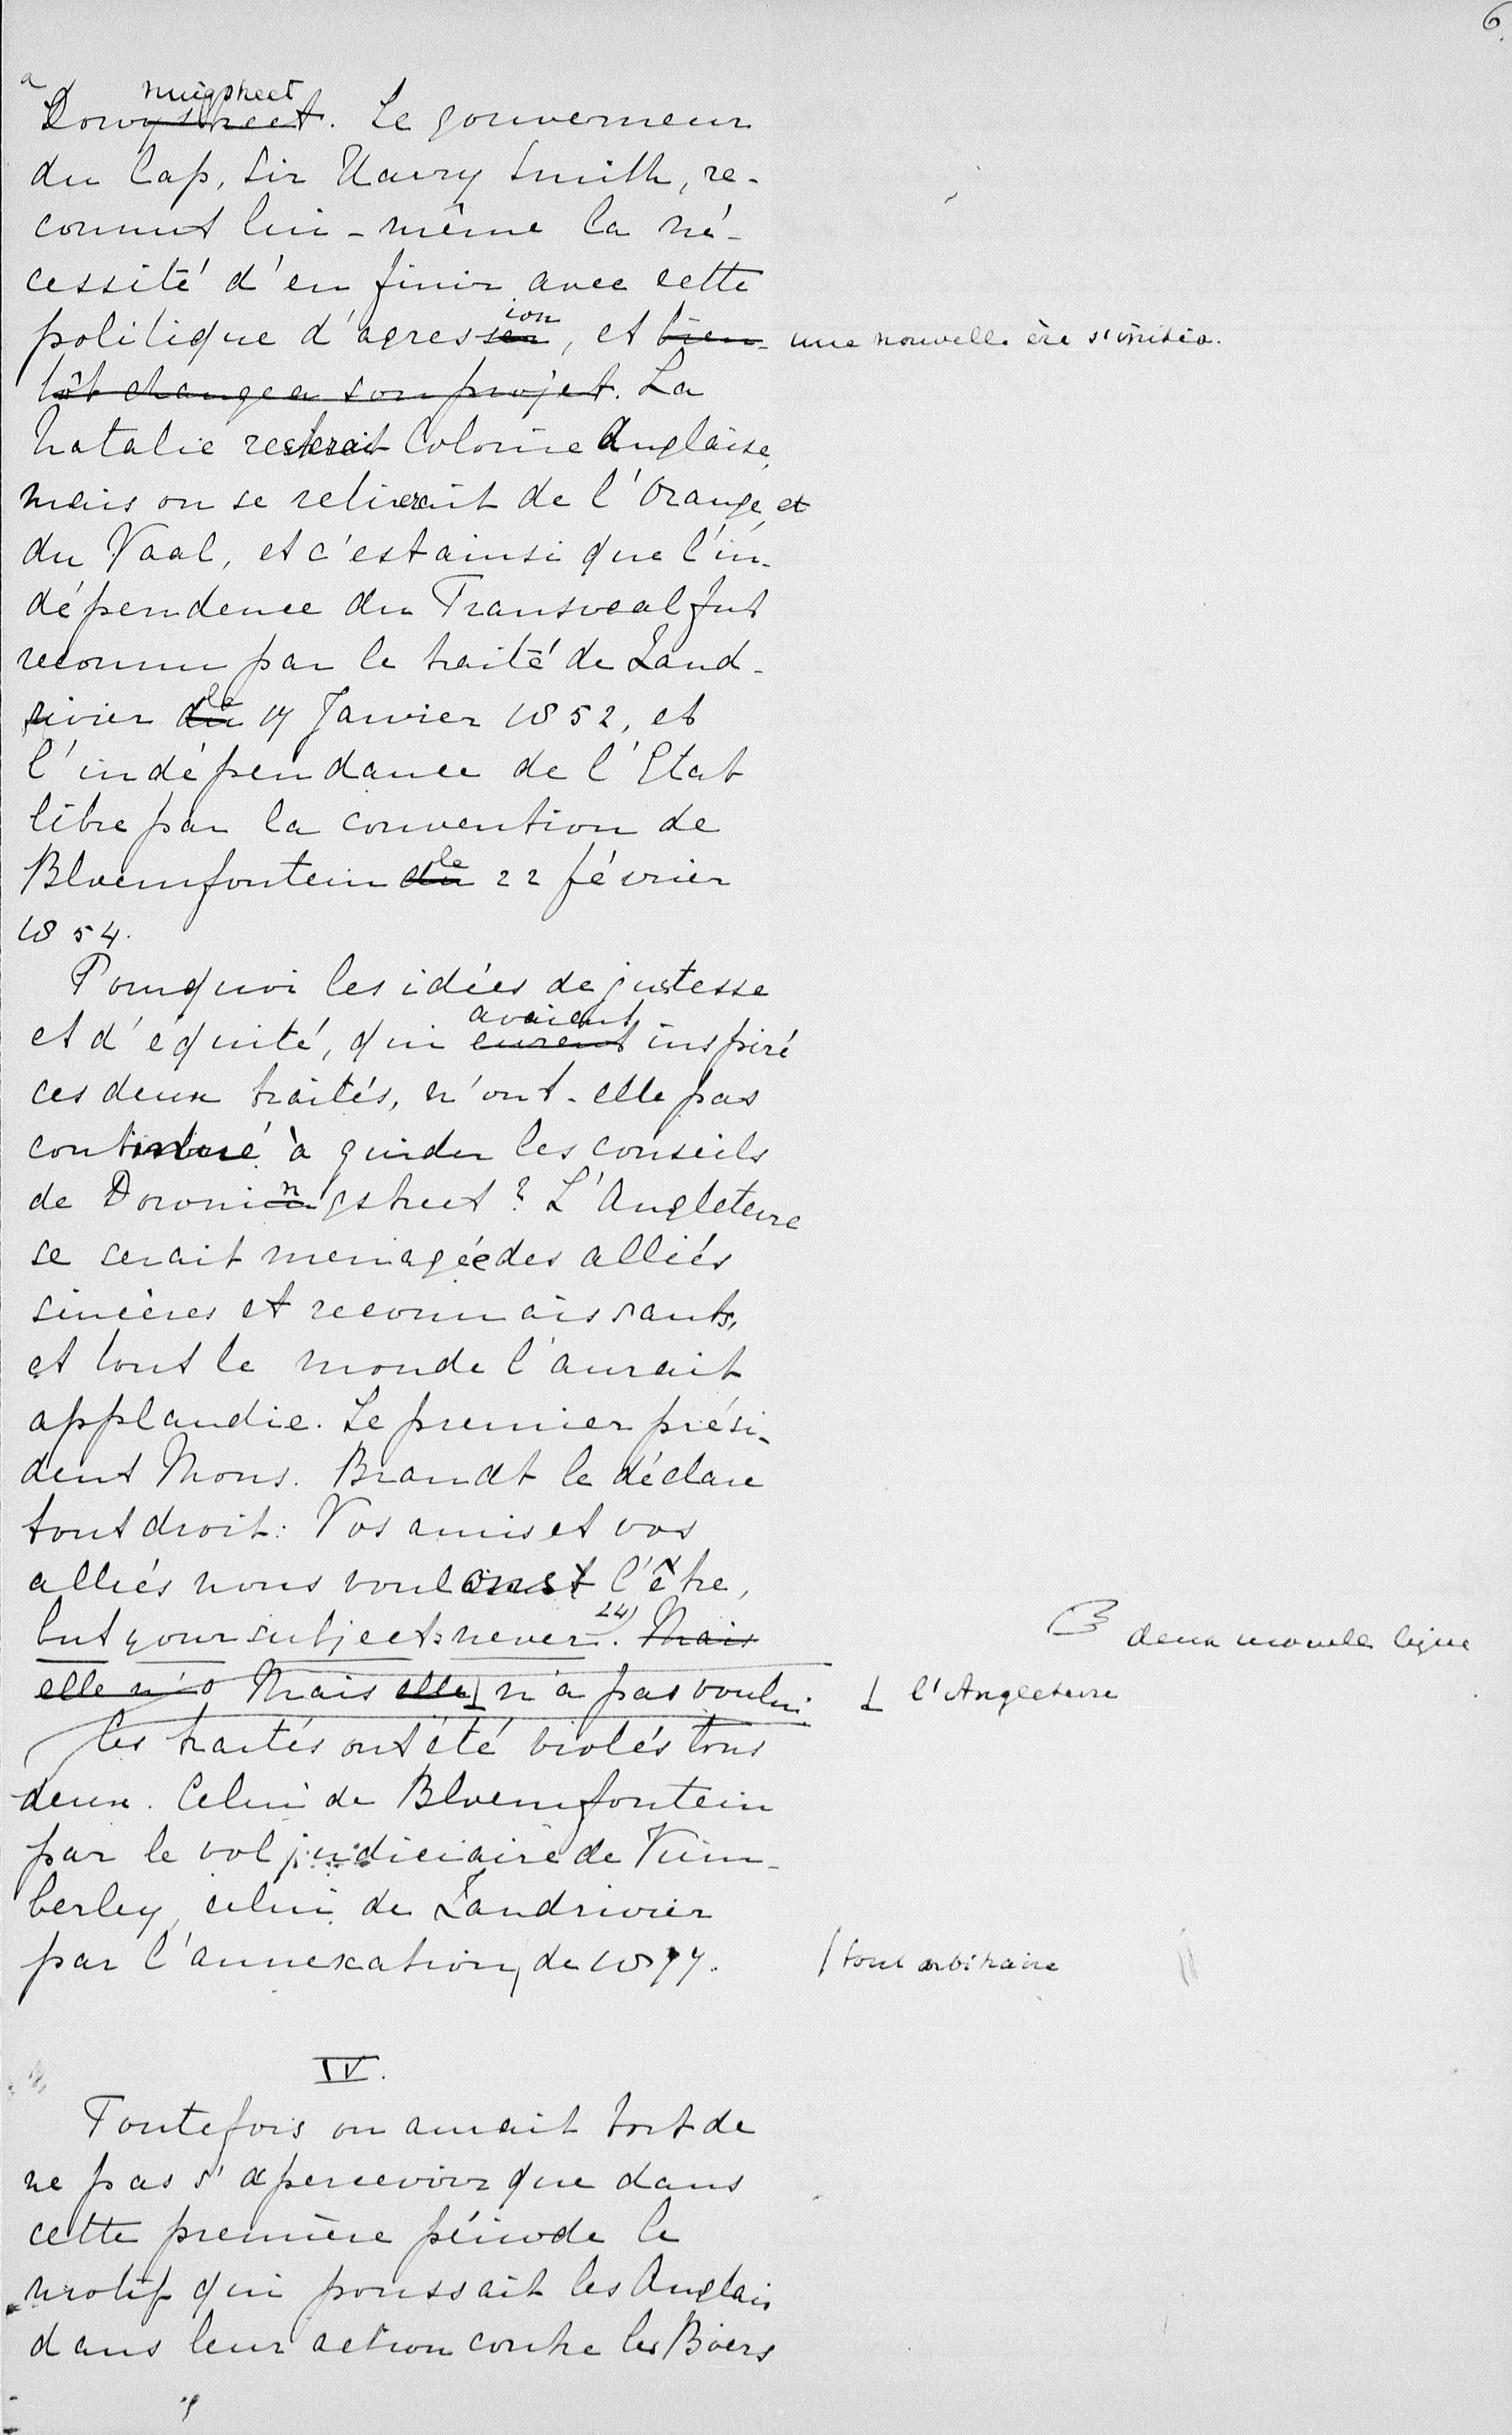 6.
a
ningstreet
Dowystreet. Le gouverneur
du Cap, Sir Harry Smith, re-
connut lui-même la né-
cessité d'en finir avec cette
ion
politique d'agresser, et bien- une nouvelle ère s'initia.
tôt changea son projet. La
Natalie resterait Colonie Anglaise,
mais on se retirerait de l'Orange, et
du Vaal, et c'est ainsi que l'in-
dépendence du Transvaal fut
reconnu par le traité de Zand-
le
rivier du 17 Janvier 1852, et
l'indépendance de l'Etat
libre par la convention de
le
Bloemfontein du 22 février
1854.
Pourquoi les idées de justesse
avaient
et d'équité, qui eurent inspiré
ces deux traités, n'ont-elle pas
continué à guider les conseils
n
de Downingstreet? L'Angleterre
se serait menagée des alliés
sincères et reconnaissants,
et tout le monde l'aurait
applaudie. Le premier prési-
dent Mons. Brandt le déclare
tout droit: Vos amis et vos
alliés nous voulons l'être,
24)
but your subjects never. Mais
deux nouvelle ligne
elle n'a Mais elle n'a pas voulu.
l'Angleterre
Les traités ont été violés tous
deux. Celui de Bloemfontein
par le vol judiciaire de Kim-
berley, celui de Zandrivier
par l'annexation, de 1877. tout arbitraire
IV.
Toutefois on aurait tort de
ne pas s'apercevoir que dans
cette première période le
motif qui poussait les Anglais
dans leur action contre les Boers